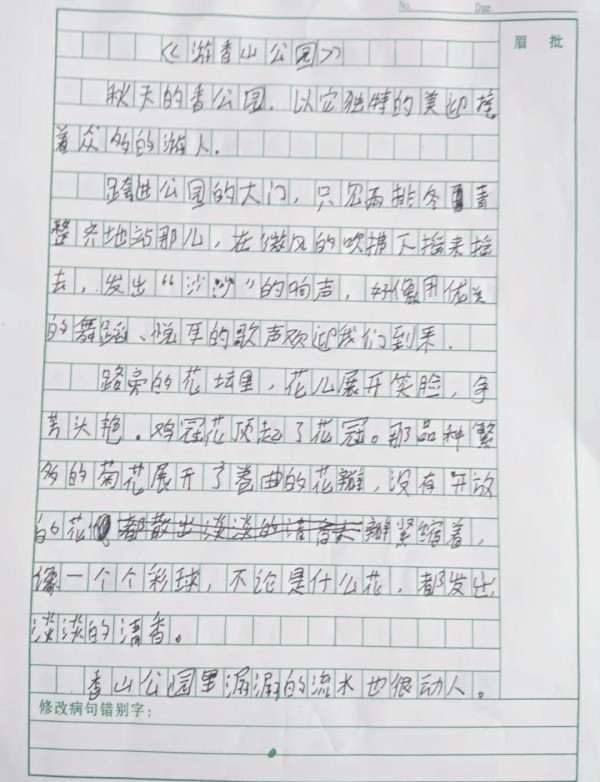 No. Date.
眉 批
《游香山公园》
秋天的香公园，以它独特的美迎接
着众多的游人.
踏进公园的大门，只见两排冬青
整齐地站那儿，在微风的吹拂下摇来摇
去，发出“沙沙”的响声，好像用优美
的舞蹈、悦耳的歌声欢迎我们到来.
路旁的花坛里，花儿展开笑脸，争
芳头艳。鸡冠花顶起了花冠。那品种繁
多的菊花展开了卷曲的花瓣，没有开放
的花都散出淡淡的清香瓣紧缩着，
像一个个彩球，不论是什么花，都发出
淡淡的清香。
香山公园里潺潺的流水也很动人。
修改病句错别字：